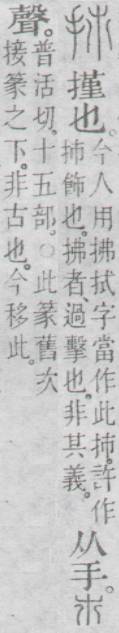 㧊㨷也。今人用拂拭字當作此㧊。許作㧊飾也。拂者、過擊也。非其義。从手。巿
聲。普活切。十五部。○此篆舊次接篆之下。非古也。今移此。